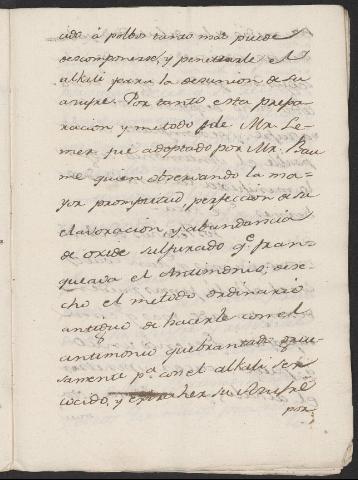 cido á polbo tanto mas puede
descomponerse, y penetrarle el
alkili para la desunion de su
azufre. Por tanto, esta prepa-
racion y metodo de Mr. Le-
mer fue adoptado por Mr. Bau-
me quien observando la ma-
yor promptitud, perfeccion de su
elavoracion, y abundancia
de oxide sulfurado q.e fran-
queava el Antimonio; dese-
cho el metodo ordinario
antiguo de hacerle con el
antimonio quebrantado
samente p.a con el alkili ser
cocido, y extraher su Azufre
por